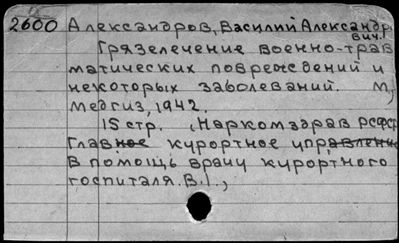 2600 Александров, Василий Александр
вич.
Грязелечение военно-трав
матических повреждений и
некоторых заболеваний. М,
Медгиз, 1942.
15 стр. (Наркомздрав РСФСР
Главное курортное управление
В помощь врачу курортного
госпиталя. В.1.,